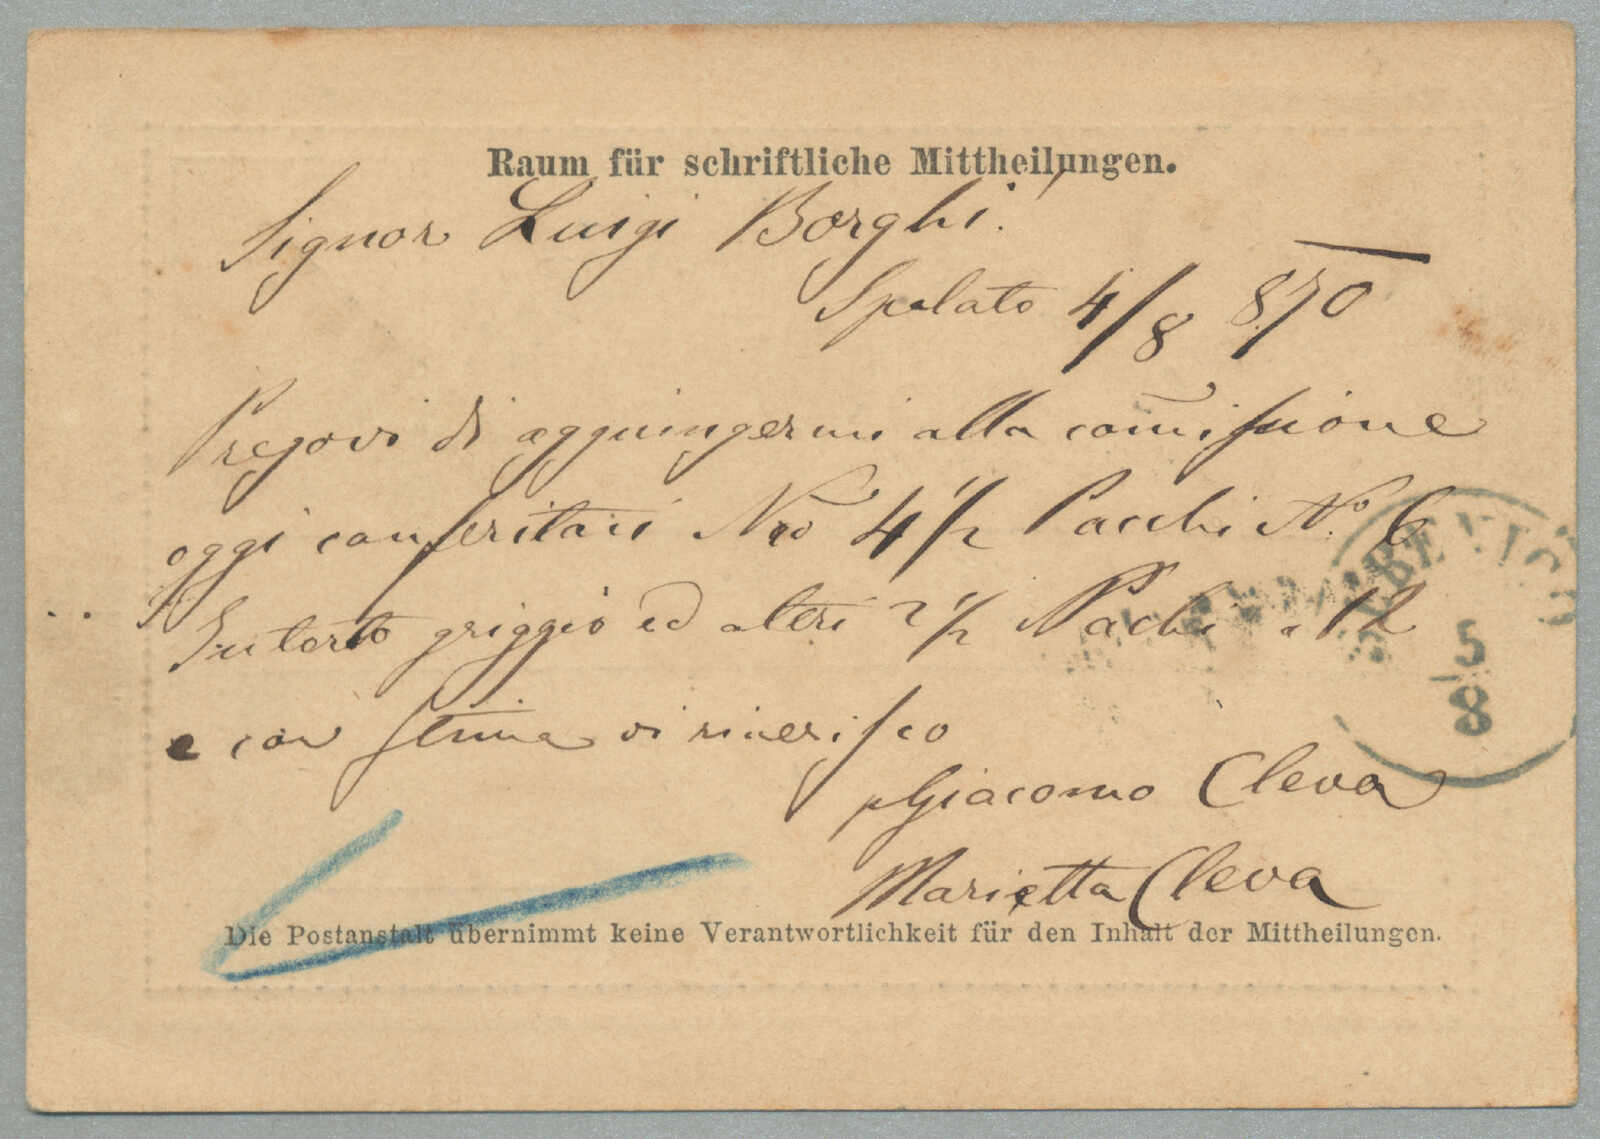 Raum für schriftliche Mittheilungen.
Signor Luigi Borghi!
Spalato 4/8 870
Pregovi di aggiungermi alla comissione
oggi conferitavi Nro 4 1/2 Pacchi No. 6
Intorto griggio ed altri 2 1/2 Pachi a 12
e con stima vi riverisco
Giacomo Cleva
Marietta Cleva
Die Postanstalt übernimmt keine Verantwortlichkeit für den Inhalt der Mittheilungen.
SEBENICO
5
8